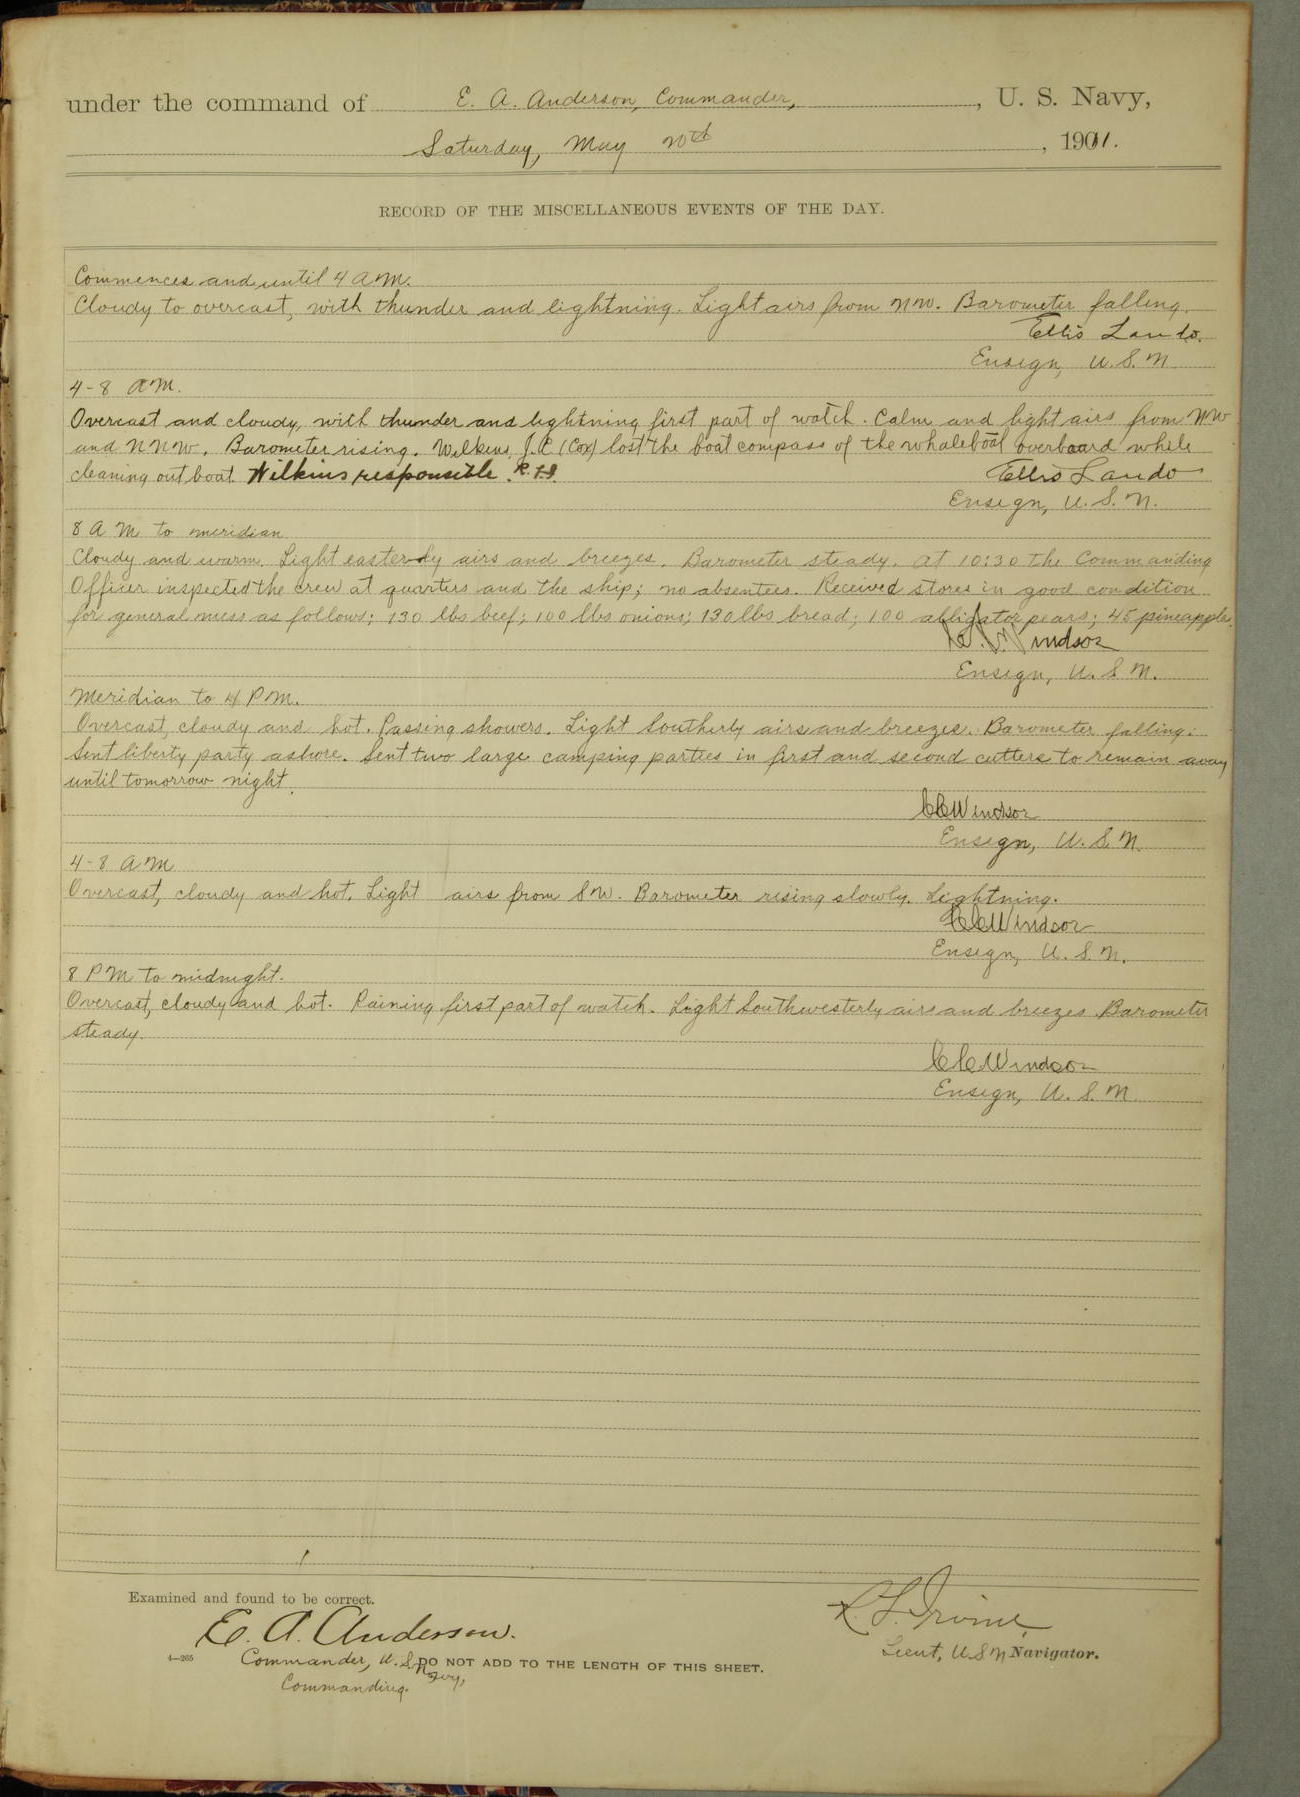 under the command of E. A. Anderson, Commander, , U. S. Navy,
Saturday, May 20th , 1911.
RECORD OF THE MISCELLANEOUS EVENTS OF THE DAY.
Commences and until 4 A M.
Cloudy to overcast, with thunder and lightning. Light airs from NW. Barometer falling.
Ellis Lando.
Ensign, U. S. N.
4-8 A M.
Overcast and cloudy, with thunder and lightning first part of watch. Calm and light airs from NW
and NNW. Barometer rising. Wilkins, J. (Cox) lost the boat compass of the whaleboat overboard while
cleaning out boat. Wilkins responsible.
Ellis Lando
Ensign, U. S. N.
8 A M to meridian
Cloudy and warm. Light easterly airs and breezes. Barometer steady. At 10:30 the Commanding
Officer inspected the crew at quarters and the ship; no absentees. Received stores in good condition
for general mess as follows; 130 lbs beef; 100 lbs onions; 130 lbs bread; 100 alligator pears; 45 pineapple.
Windsor
Ensign, U. S. N.
Meridian to 4 P M.
Overcast, cloudy and hot. Passing showers. Light Southerly airs and breezes. Barometer falling.
Sent liberty party ashore. Sent two large camping parties in first and second cutters to remain away
until tomorrow night.
CC Windsor
Ensign, U. S. N.
4-8 A M
Overcast, cloudy and hot. Light airs from SW. Barometer rising slowly. Lightning.
CC Windsor
Ensign, U. S. N.
8 P M to midnight.
Overcast, cloudy and hot. Raining first part of watch. Light Southwesterly airs and breezes Barometer
steady.
CC Windsor
Ensign, U. S. N.
Examined and found to be correct.
E. A. Anderson.
Commander, U. S. Navy,
Commanding.
4—265
DO NOT ADD TO THE LENGTH OF THIS SHEET.
R. L. Irvine,
Lieut, U S N Navigator.